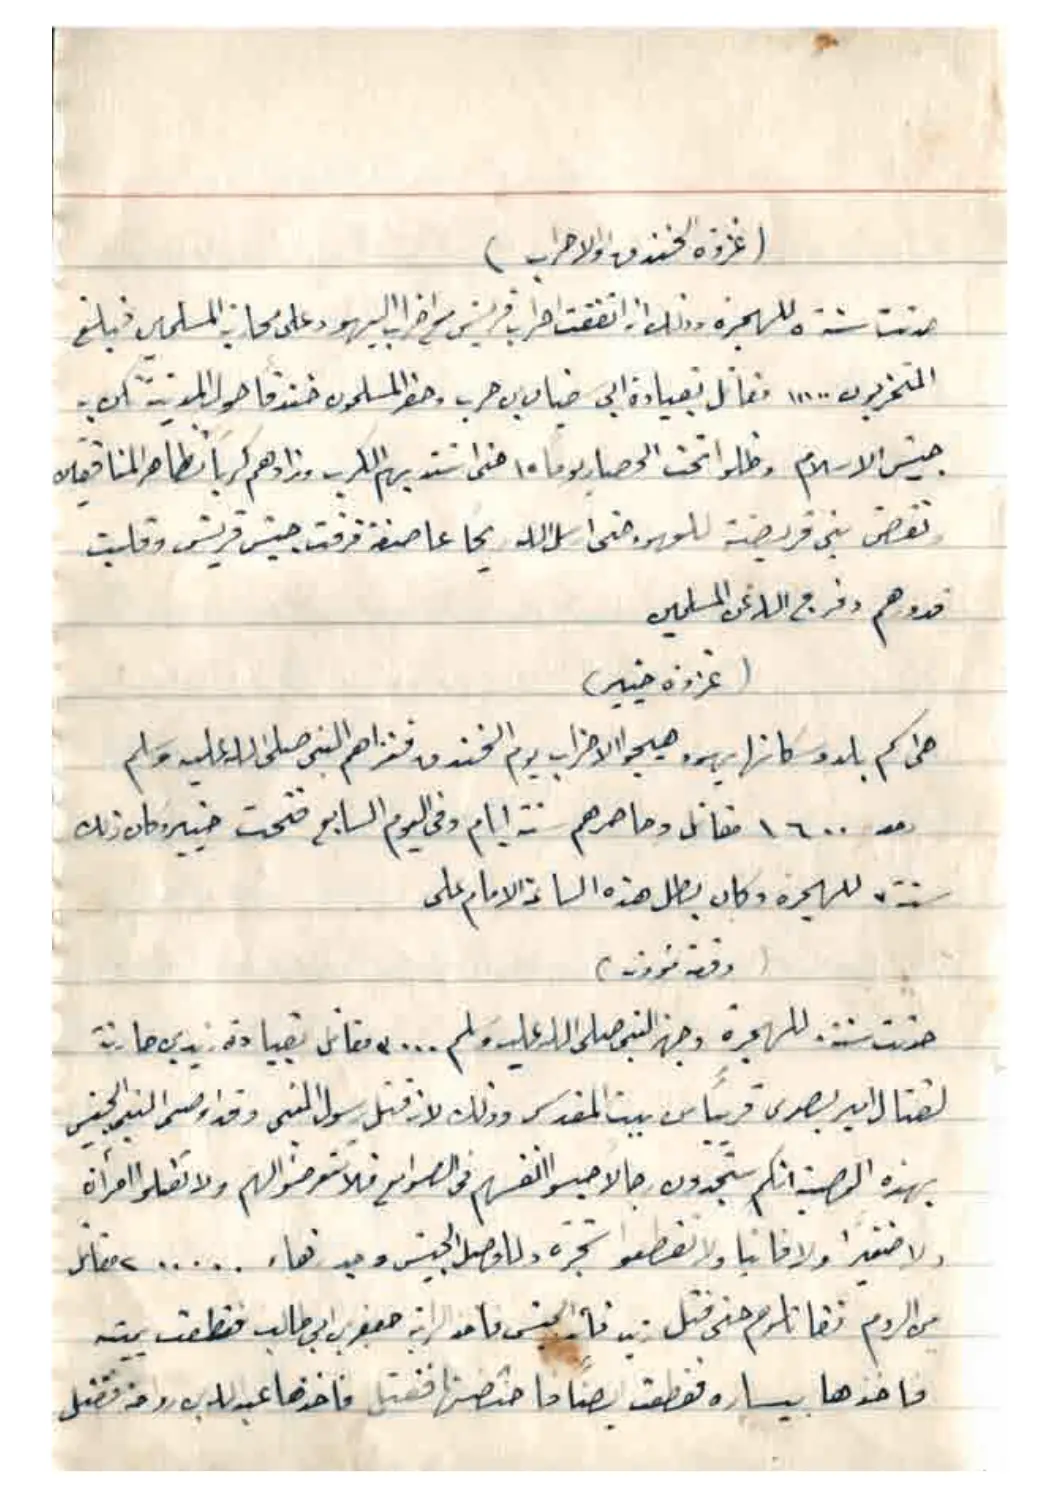 (غزوة الخندق والاحزاب)
حدثت سنة ٥ للهجرة وذلك انه اتفقت احزاب قريش مع احزاب اليهود على محاربة المسلمين فبلغ
المتحزبون ١٠٠٠٠ مقاتل بقيادة ابي سفيان بن حرب وحفر المسلمون خندقاً حول المدينة
جيش الاسلام وظلوا تحت الحصار يوماً ١٥ حتى اشتد بهم الكرب وزادهم كرباً تظاهر المنافقين
ونقض بني قريضة للعهود حتى ارسل الله ريحاً عاصفة فرقت جيش قريش وقلبت
قدورهم وفرج الله عن المسلمين
(غزوة خيبر)
بلد وسكانها يهود هيجوا الاحزاب يوم الخندق فغزاهم النبي صلى الله عليه وسلم
بعد ١٦٠٠ مقاتل وحاصرهم ستة ايام وفي اليوم السابع فتحت خيبر وكان ذلك
سنة ٧ للهجرة وكان بطل هذه الساعة الامام علي
(وقعة مؤوته)
حدثت سنة للهجرة وجهز النبي صلى الله عليه وسلم ٣٠٠٠ مقاتل بقيادة زيد بن حارثة
لقتال امير بصرى قريباً من بيت المقدس وذلك لانه قتل رسول النبي وقد اوصى النبي الجيش
بهذه الوصية انكم ستجدون رجالاً حبسوا انفسهم في الصوامع فلا تتعرضوا لهم ولا تقتلوا امرأة
ولا صغيراً ولا فانيا ولا تقطعوا شجرة ولما وصل الجيش وجد زهاء ٢٠٠٠٠٠ مقاتل
من الروم فقاتلوهم حتى قتل زيد قائد الجيش فاخذ الراية جعفر بن ابي طالب فقطعت يمينه
فاخذها بيساره فقطعت ايضاً فاحتضنها فقتل فاخذها عبدالله بن رواحة فقتل